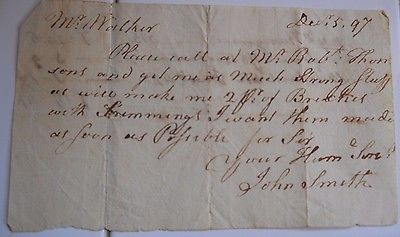 Mr. Walker Decr. 5. 97
Please call at Mr. Robt. Thom
sons and get me as Much Strong Stuff
as will make me 2 pr. of Breeches
with Trimmings I want them made
as soon as Possible for Sir
Your Hume. Servt.
John Smith